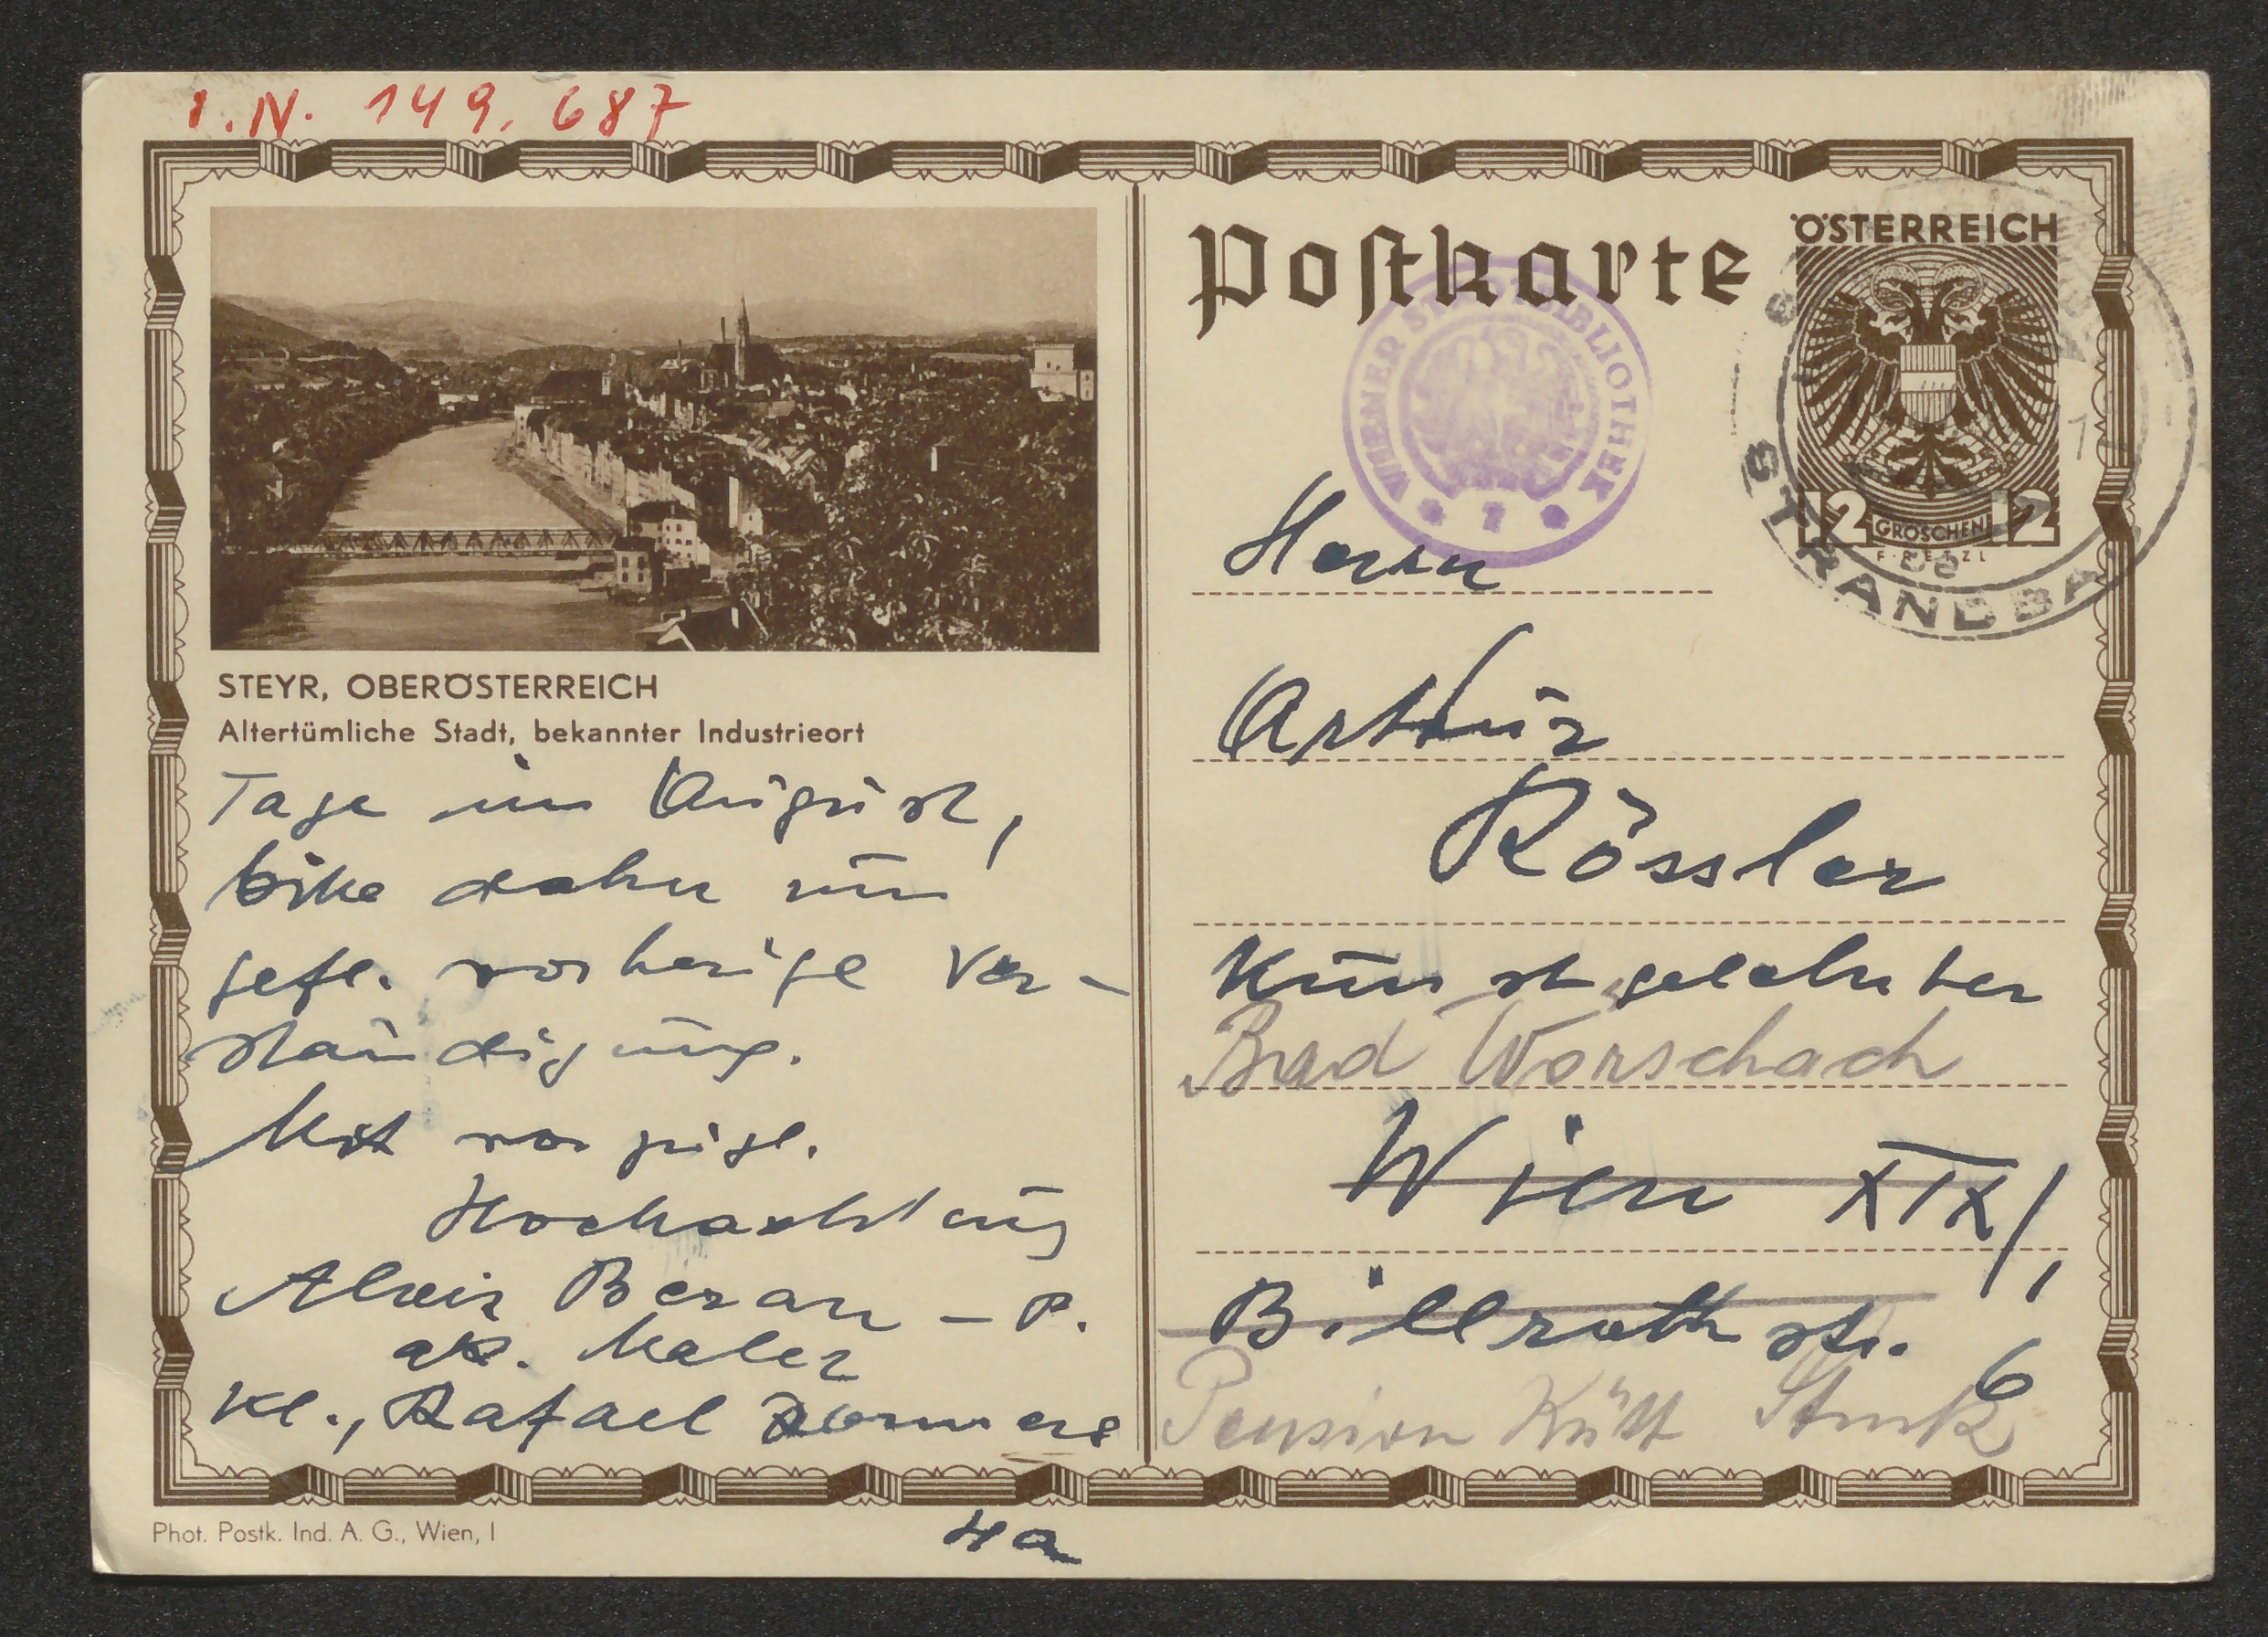 I.N. 149.687
STEYR, OBERÖSTERREICH
Altertümliche Stadt, bekannter Industrieort
Tage im August,
bitte daher um
gefl. vorherige Ver-
ständigung.
Mit vorzügl.
Hochachtung
Alois Beran - P.
ak. Maler
Kl., Rafael Donnerg
4a
Phot. Postk. Ind. A. G., Wien, I
Postkarte
ÖSTERREICH
12 GROSCHEN 12
WIENER STADTBIBLIOTHEK
STRANDBA
Herrn
Arthur
Rössler
Kunstgelehrter
Bad Wörschach
Wien XIX/1
Billrothstr. 6
Pension